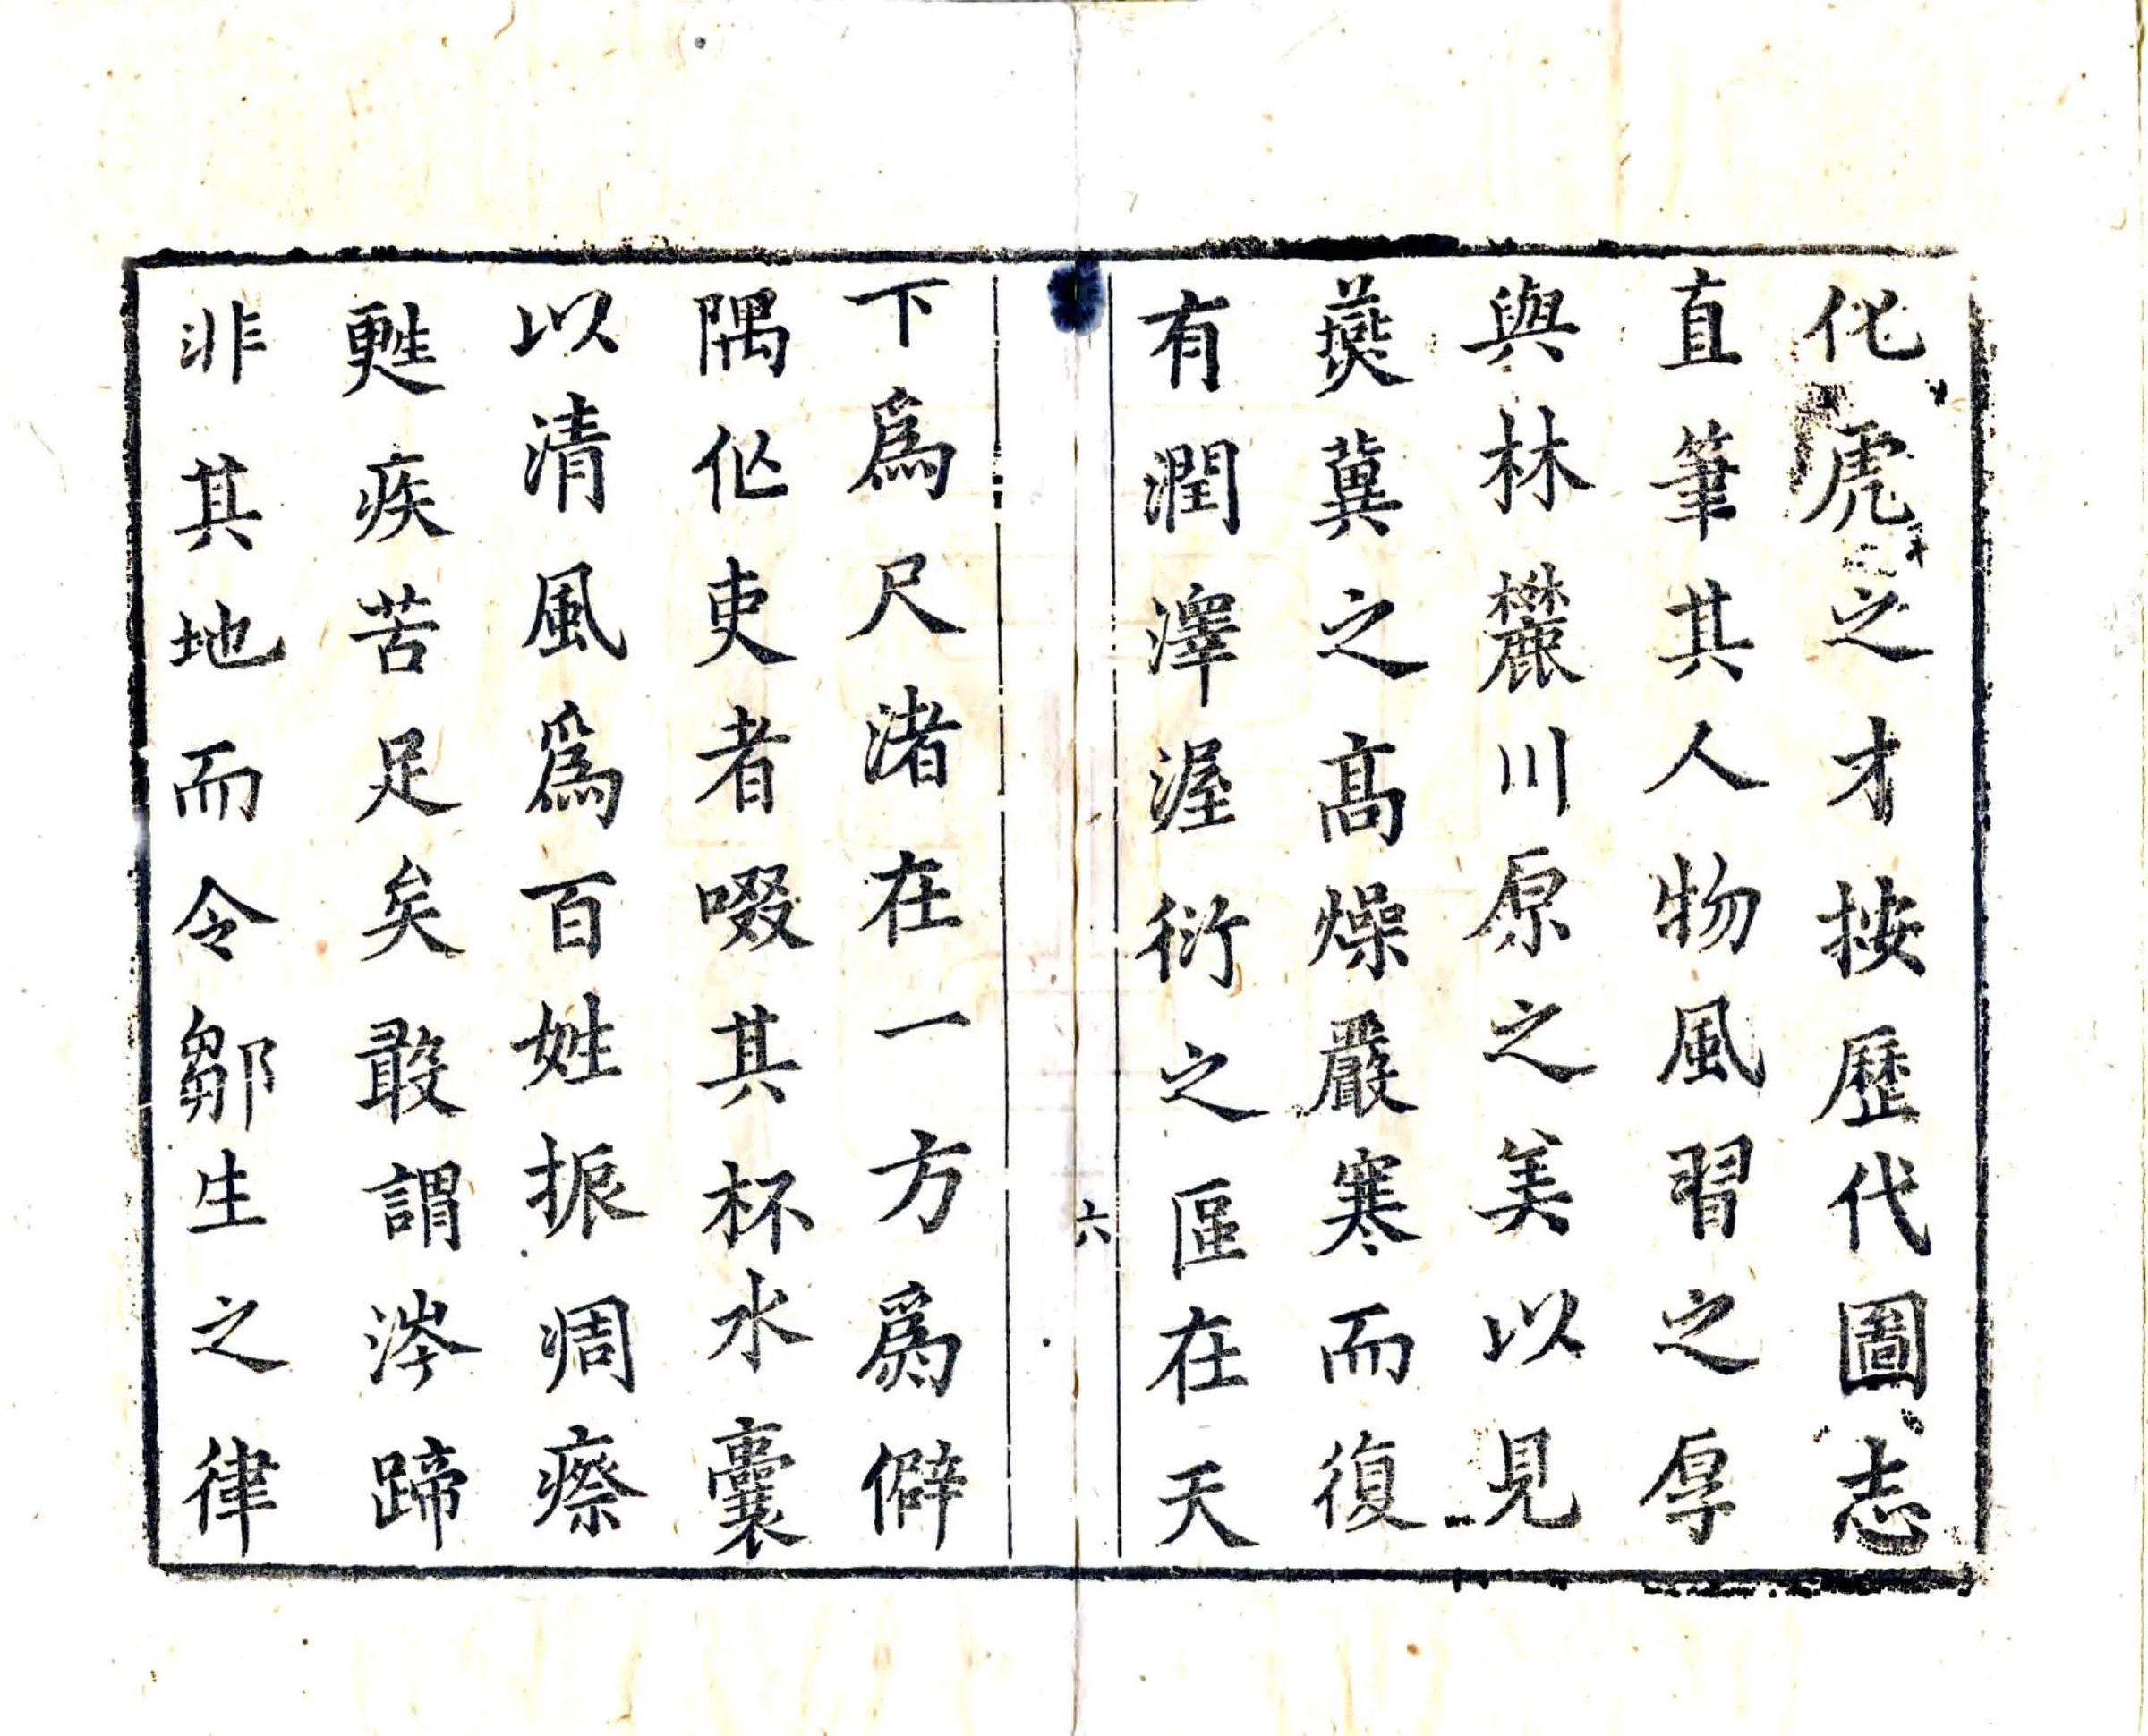 化虎之才按歷代圖志
直筆其人物風習之厚
與林麓川原之美以見
燕冀之高燥嚴寒而復
有潤澤渥衍之區在天
六
下爲尺渚在一方爲僻
隅作吏者啜其杯水囊
以清風爲百姓振凋瘵
甦疾苦足矣敢謂涔蹄
非其地而令鄒生之律